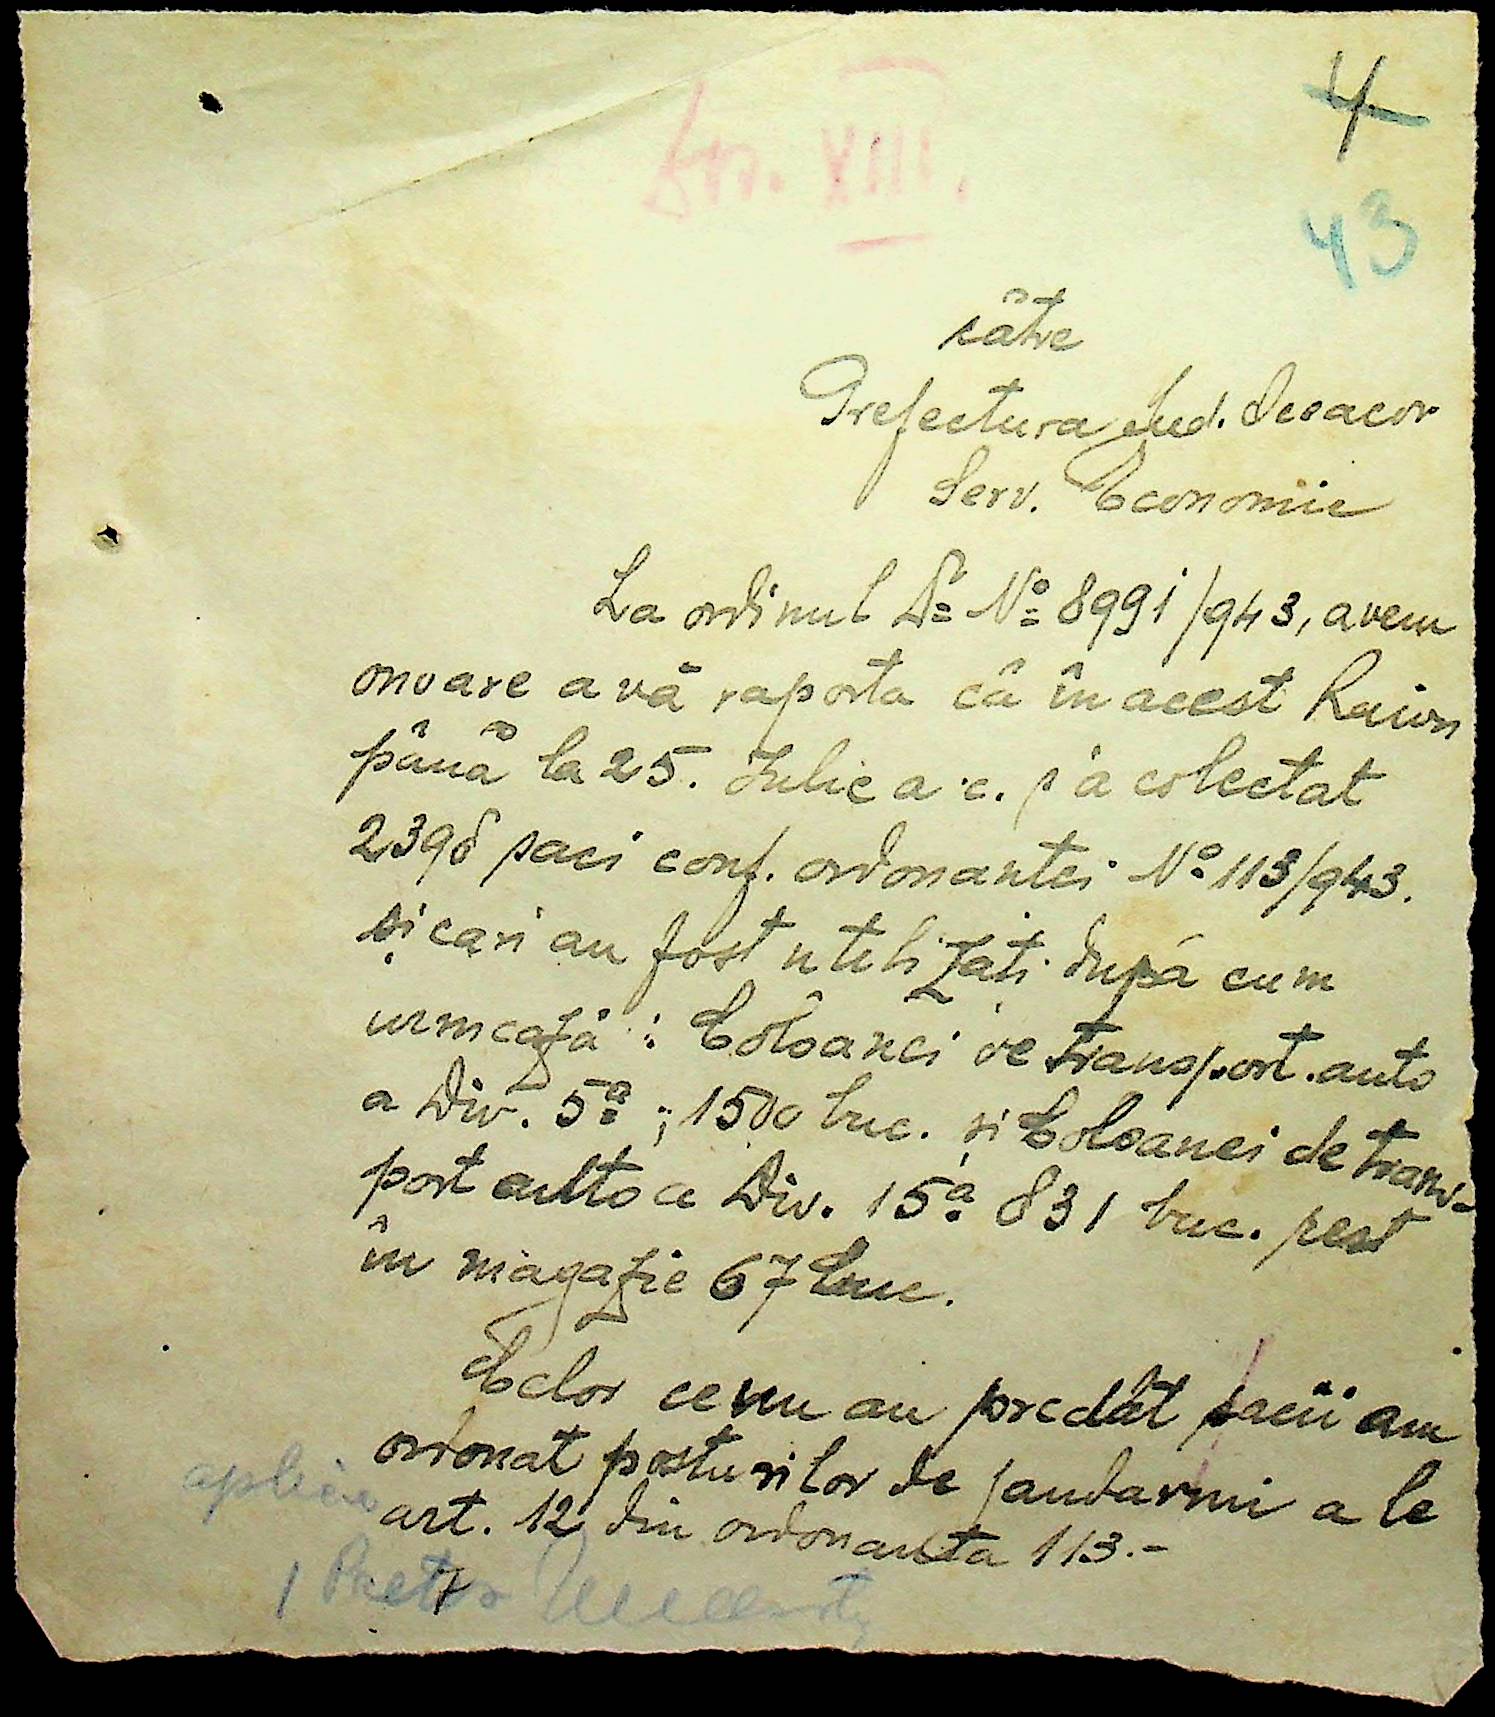 XIII.
4
43
către
Prefectura Jud. Ovacov
Serv. Economic
La ordinul Dv. No 8991/943, avem
onoare a vă raporta că în acest Raion
până la 25. Iulie a.c. s'a colectat
2398 saci conf. ordonantei No 113/943.
și cari au fost utilizați după cum
urmează: Coloanei de transport auto
a Div. 5a; 1500 buc. și Coloanei de trans-
port auto a Div. 15a 831 buc. rest
în magazie 67 buc.
Celor ce nu au predat sacii am
ordonat posturilor de jandarmi a le
aplica art. 12 din ordonanta 113.-
Pretor